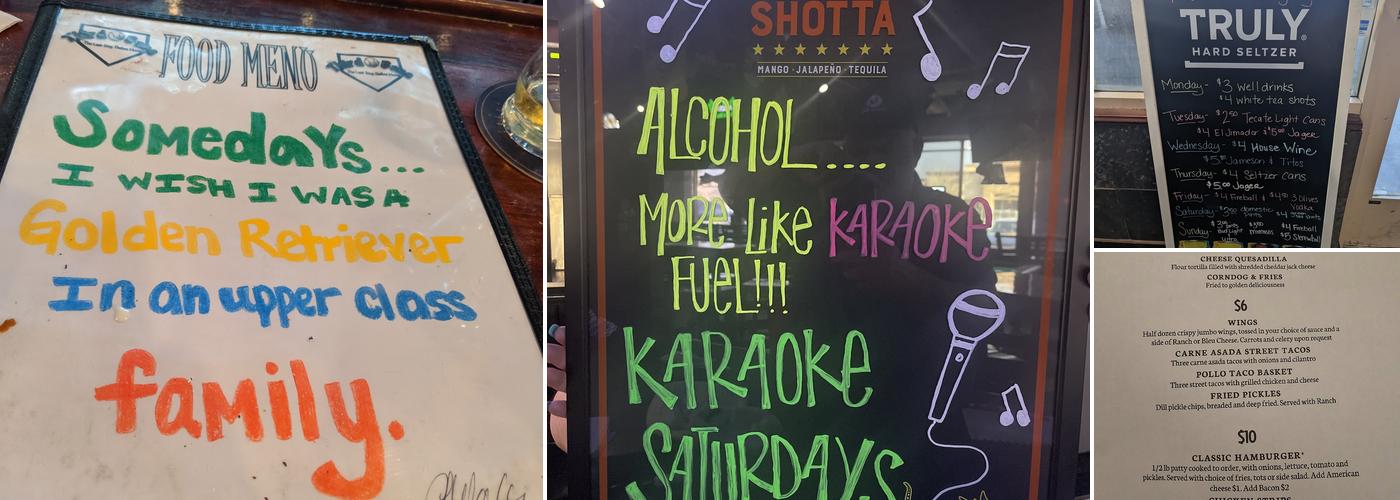 FOOD MENU
Somedays...
I WISH I WAS A
Golden Retriever
In an upper class
family.
SHOTTA
MANGO · JALAPEÑO · TEQUILA
ALCOHOL....
MORE Like KARAOKE
FUEL!!!
KARAOKE
SATURDAYS
TRULY
HARD SELTZER
Monday - $3 well drinks
$4 white tea shots
Tuesday - $2.50 Tecate Light Cans
$4 El Jimador & $5.00 Jager
Wednesday - $4 House Wine
Jameson & Titos
Thursday - $4 Seltzer Cans
$5.00 Jager
Friday - $4 Fireball 3 Olives
Vodka
Saturday - domestic
Sunday - $4 Fireball
CHEESE QUESADILLA
Flour tortilla filled with shredded cheddar jack cheese
CORNDOG & FRIES
Fried to golden deliciousness
$6
WINGS
Half dozen crispy jumbo wings, tossed in your choice of sauce and a
side of Ranch or Bleu Cheese. Carrots and celery upon request
CARNE ASADA STREET TACOS
Three carne asada tacos with onions and cilantro
POLLO TACO BASKET
Three street tacos with grilled chicken and cheese
FRIED PICKLES
Dill pickle chips, breaded and deep fried. Served with Ranch
$10
CLASSIC HAMBURGER*
1/2 lb patty cooked to order, with onions, lettuce, tomato and
pickles. Served with choice of fries, tots or side salad. Add American
cheese $1. Add Bacon $2
CHICKEN STRIPS